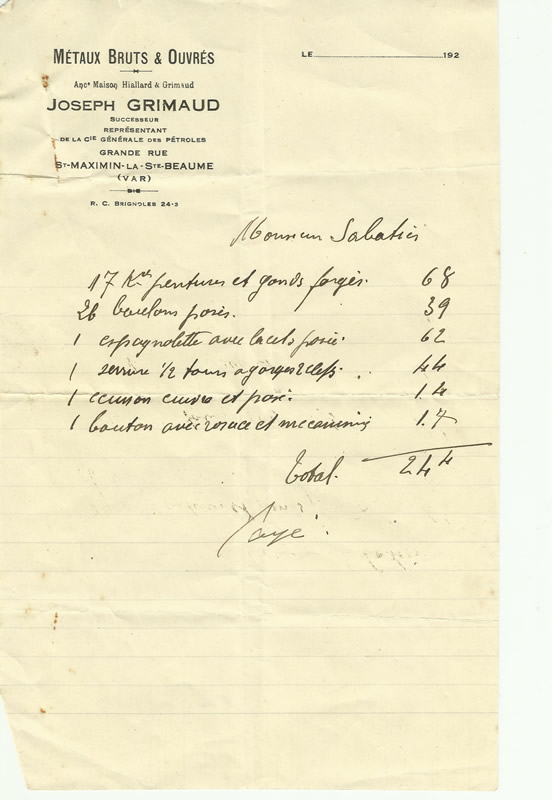 MÉTAUX BRUTS & OUVRÉS
LE 192
Ancᵉ Maison Hiallard & Grimaud
JOSEPH GRIMAUD
SUCCESSEUR
REPRÉSENTANT
DE LA Cⁱᴱ GÉNÉRALE DES PÉTROLES
GRANDE RUE
Sᵀ-MAXIMIN-LA-Sᵀᴱ-BEAUME
(VAR)
R. C. BRIGNOLES 24-3
Monsieur Sabatier
17 Kᵒˢ pentures et gonds forgés. 68
26 boulons posés. 39
1 espagnolette avec lacets posée 62
1 serrure 1/2 tours a gorges 2 clefs. 44
1 ecusson cuivre et posé. 14
1 bouton avec rosace et mecanisme 17
Total. 244
Payé.